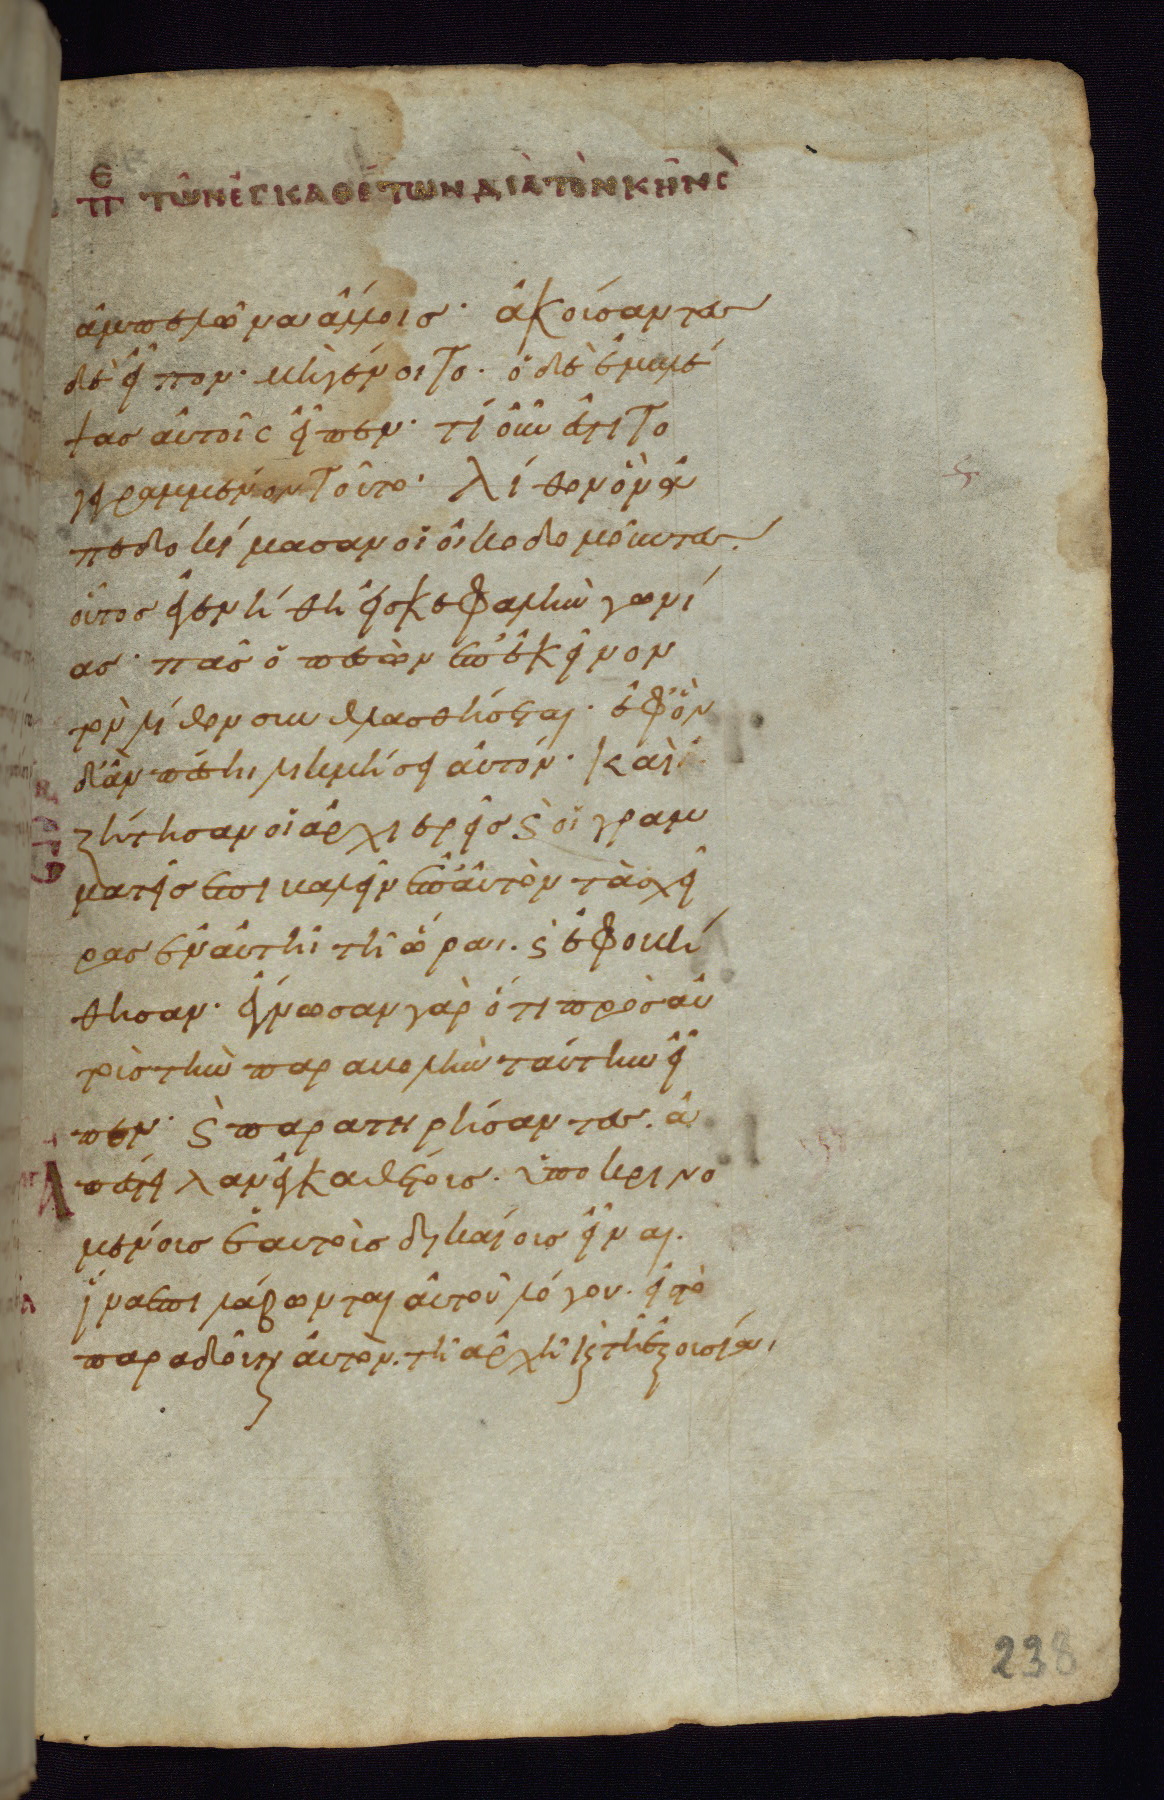 πε τῶν ἐγκαθέτων διὰ τὸν κῆνσὸ
ἀμπελῶνα ἄλλοις· ἀκούσαντες
δὲ εἶπον· μὴ γένοιτο· ὁ δὲ ἐμβλέ
ψας αὐτοῖς εἶπεν· τί οὖν ἐστι το
γεγραμμένον τοῦτο· λίθον ὃν ἀ
πεδοκίμασαν οἱ οἰκοδομοῦντες·
οὗτος ἐγενήθη εἰς κεφαλὴν γωνί
ας· πᾶς ὁ πεσὼν ἐπ' ἐκεῖνον
τὸν λίθον συνθλασθήσεται· ἐφ' ὃν
δ' ἂν πέση λικμήσει αὐτόν· καὶ ἐ
ζήτησαν οἱ ἀρχιερεῖς ϛ οἱ γραμ
ματεῖς ἐπιβαλεῖν ἐπ' αὐτὸν τὰς χεῖ
ρας ἐν αὐτῆ τῆ ὥραι· ϛ ἐφοβή
θησαν· ἔγνωσαν γὰρ ὅτι πρὸς αὐ
τοὺς τὴν παραβολὴν ταύτην εἶ
πεν· ϛ παρατηρήσαντες· ἀ
πέστειλαν ἐγκαθέτους· ὑποκρινο
μένους ἑαυτοὺς δικαίους εἶναι·
ἵνα ἐπιλάβωνται αὐτοῦ λόγου· εἰς τὸ
παραδοῦναι αὐτὸν· τῆ ἀρχῆ ϗ τῆ ἐξουσία
238